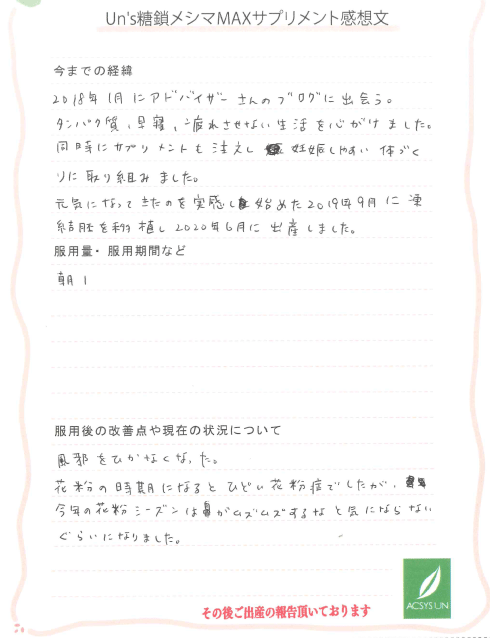 Un's糖鎖メシマMAXサプリメント感想文
今までの経緯
2018年1月にアドバイザーさんのブログに出会う。
タンパク質、早寝、疲れさせない生活を心がけました。
同時にサプリメントも注文し 妊娠しやすい体づく
りに取り組みました。
元気になってきたのを実感し始めた2019年9月に凍
結胚を移植し2020年6月に出産しました。
服用量・服用期間など
朝1
服用後の改善点や現在の状況について
風邪をひかなくなった。
花粉の時期になるとひどい花粉症でしたが、
今年の花粉シーズンは鼻がムズムズするなと気にならない
ぐらいになりました。
その後ご出産の報告頂いております
ACSYS UN